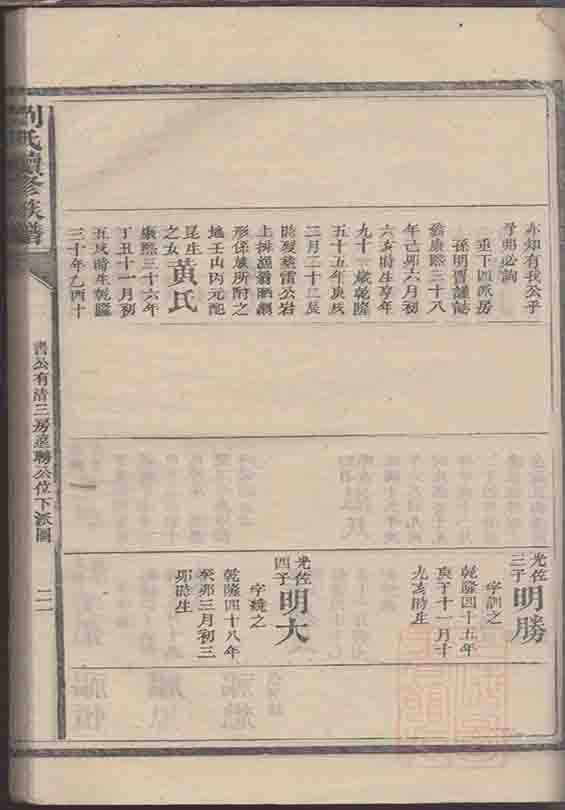 劉氏續修族譜
亦知有我公乎
母毋必詢
垂下四派房
孫明賈謹誌
翁康熙三十八
年己卯六月初
六亥時生享年
九十二歲乾隆
五十五年庚戌
二月二十二辰
時歿葬雷公岩
上排漁翁晒網
形係族所酧之
地壬山丙兼配
昆生黃氏
之女
康熙三十六年
丁丑十一月初
五戌時生乾隆
三十年乙酉十
光佐三子明勝
字訓之
乾隆四十五年
庚子十一月十
九亥時生
光佐四子明大
字繞之
乾隆四十八年
癸卯三月初三
卯時生
書公有清三房遠聯公位下派圖